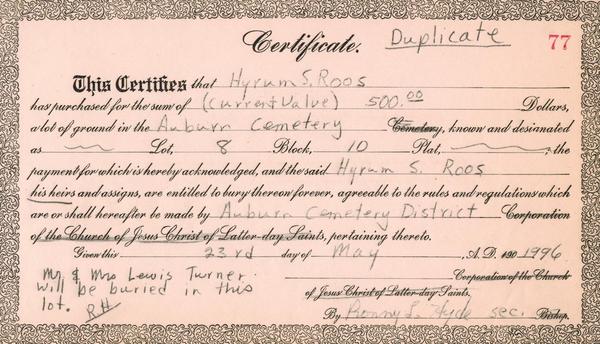 Certificate. Duplicate 77
This Certifies that Hyrum S. Roos
has purchased for the sum of (Current Value) 500.00 Dollars,
a lot of ground in the Auburn Cemetery Cemetery, known and designated
as Lot, 8 Block, 10 Plat, ; the
payment for which is hereby acknowledged, and the said Hyrum S. Roos
his heirs and assigns, are entitled to bury thereon forever, agreeable to the rules and regulations which
are or shall hereafter be made by Auburn Cemetery District Corporation
of the Church of Jesus Christ of Latter-day Saints, pertaining thereto.
Given this 23rd day of May A.D. 190 1996
Mr. & Mrs Lewis Turner.
will be buried in this
lot. RH
Corporation of the Church
of Jesus Christ of Latter-day Saints.
By Ronny L. Hyde sec. Bishop.